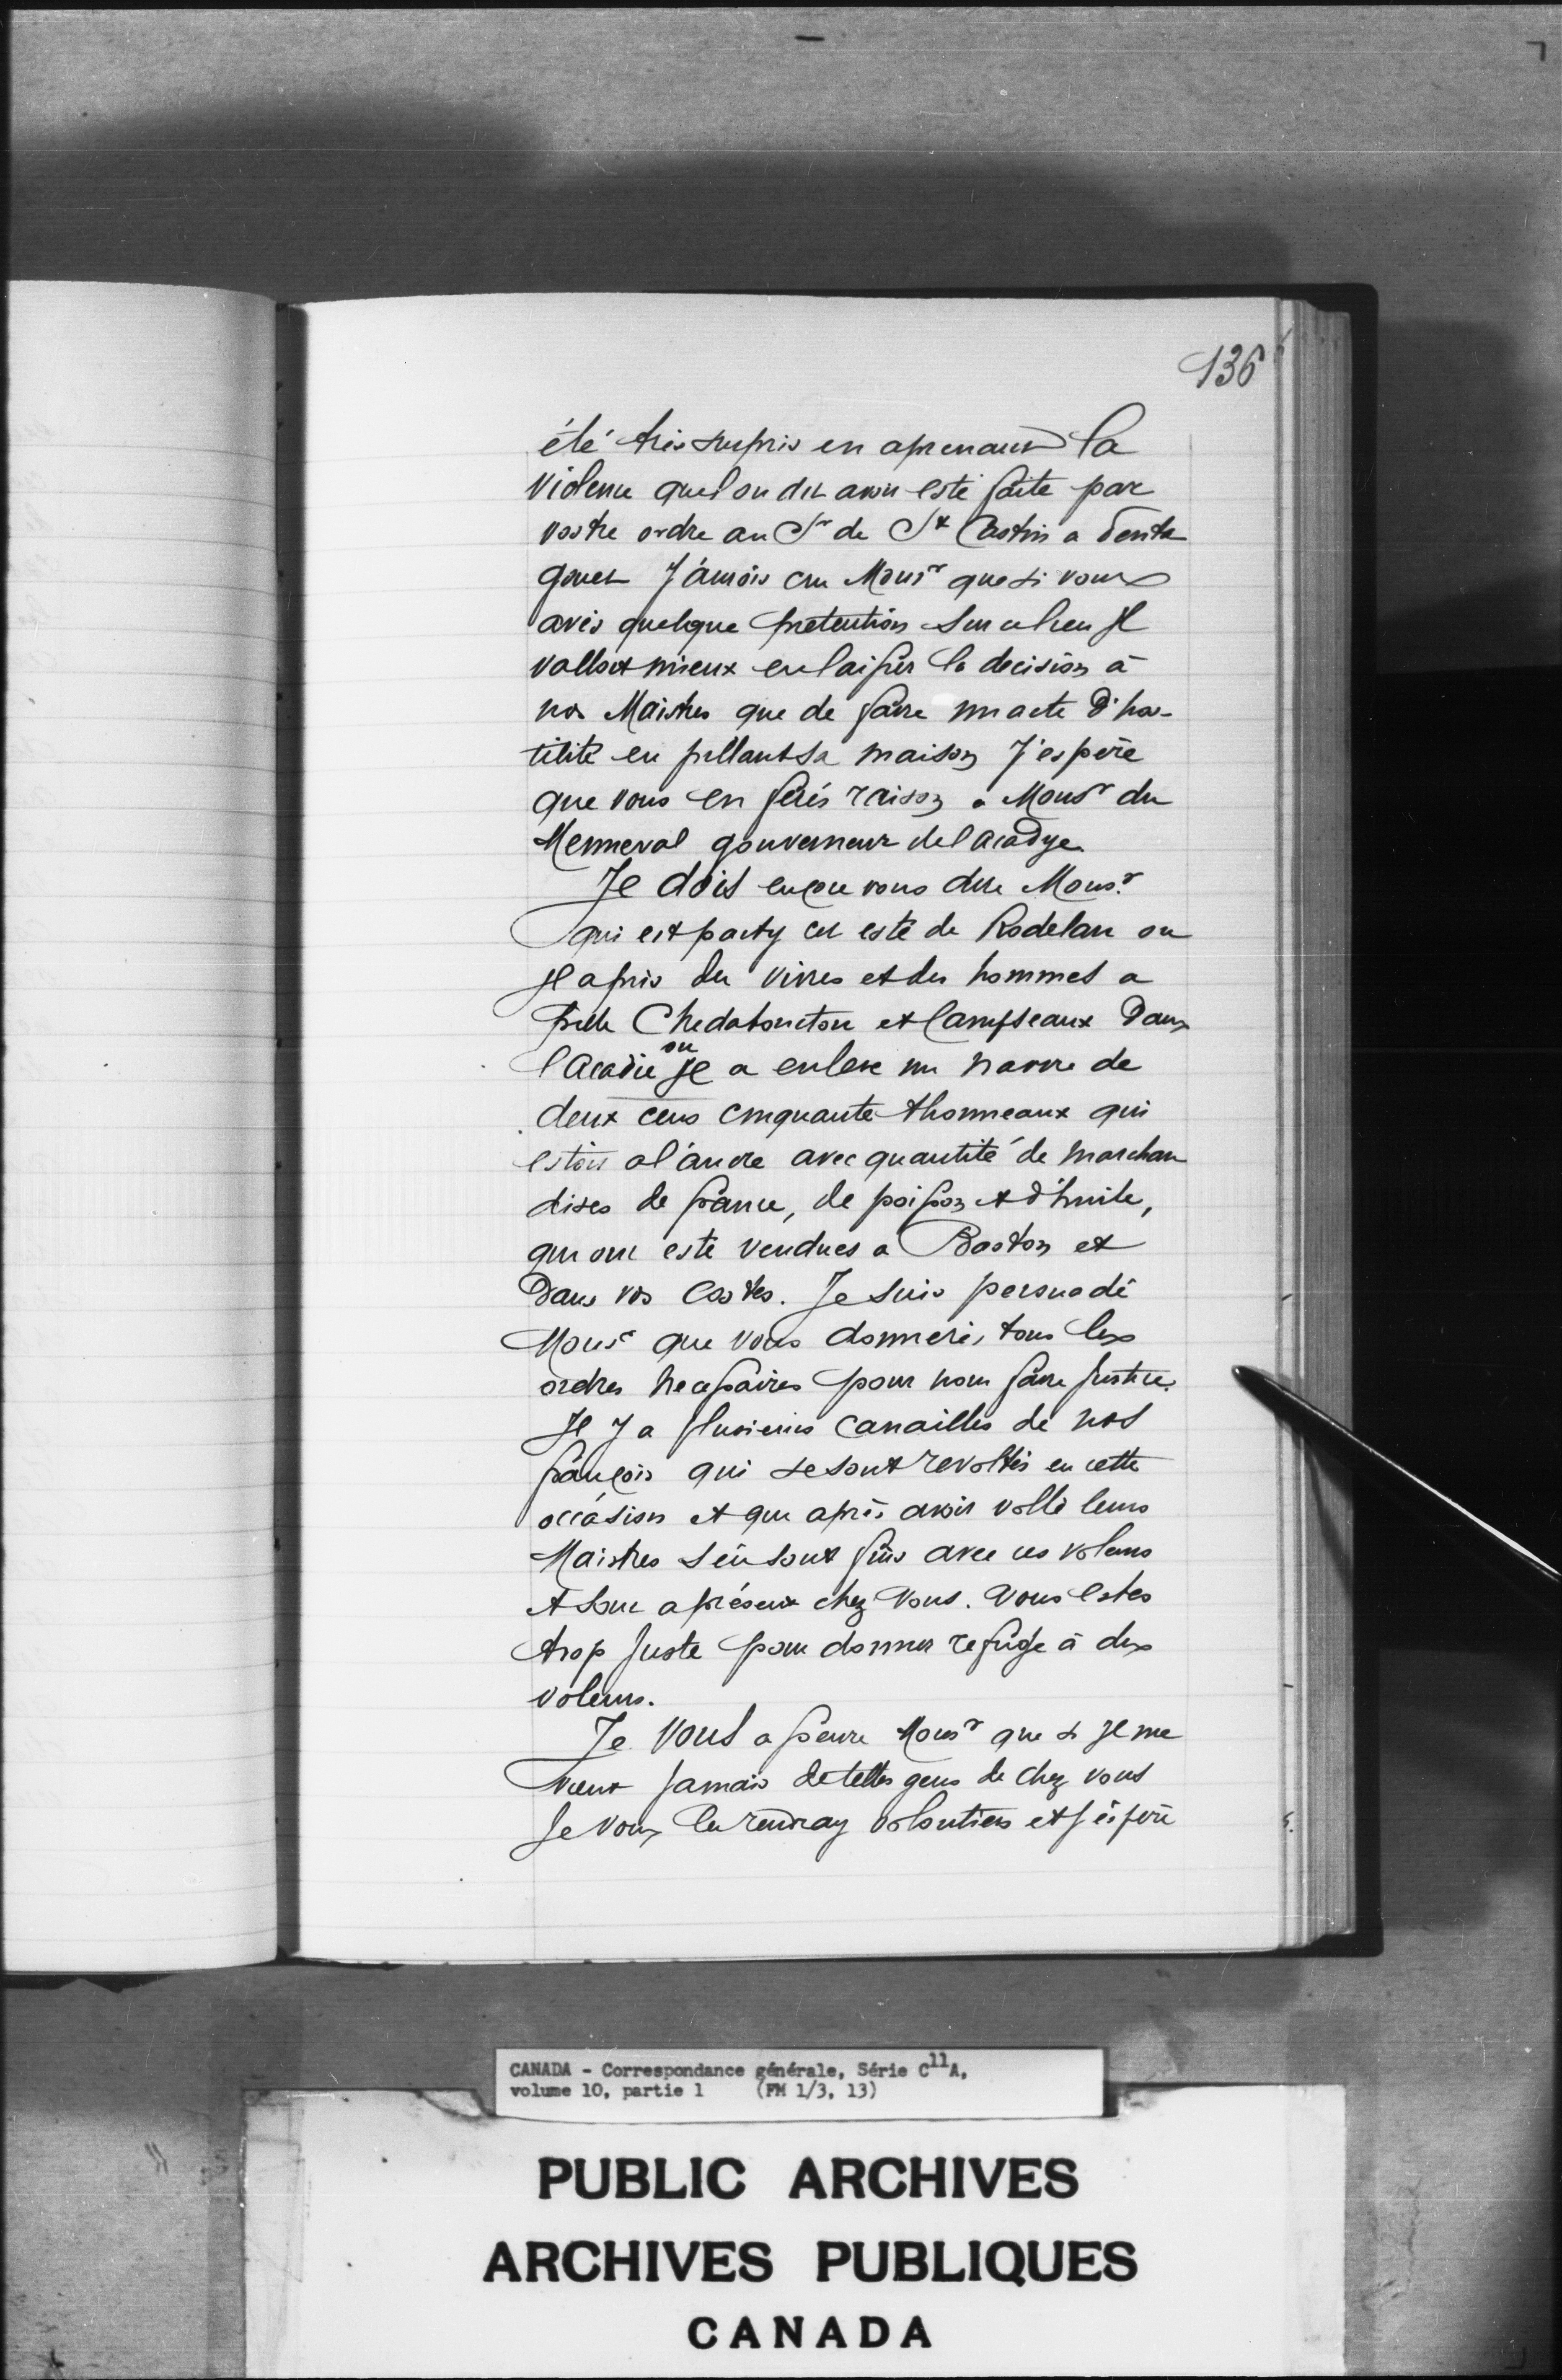 136
été très surpris en aprenant la
violence que l on dit avoir esté faite par
vostre ordre au Sr de St Castin a Penta
gouet J'aurois cru Monsr que si vous
aviés quelque pretention sur ce lieu Jl
valloit mieux en laisser la decision à
nos Maistres que de faire un acte d'hos-
tilité en pillant sa maison J'espère
que vous en ferés raison a Monsr du
Menneval gouverneur de l acadye
Je dois encore vous dire Monsr
qui est party cet esté de Rodelan ou
Jl a pris des vivres et des hommes a
pille Chedabouctou et Campseaux dans
l Acadie ou Jl a enlevé un navire de
deux cens cinquante thonneaux qui
estoit a l'ancre avec quantité de marchan
dises de france, de poisson et d'huile,
qui ont esté vendues a Baston et
dans vos Costes. Je suis persuadé
Monsr que vous donnerés tous les
ordres necessaires pour nous faire justice.
Jl y a plusieurs canailles de nos
françois qui se sont revoltés en cette
occásion et qui après avoir vollé leurs
Maistres s'en sont fuis avec ces voleurs
et sont a présent chez vous. Vous estes
trop juste pour donner refuge à des
voleurs.
Je vous asseure Monsr que s Jl me
vient jamais de telles gens de chez vous
Je vous les rendray volontiers et j'éspère
CANADA - Correspondance générale, Série C11A,
volume 10, partie 1 (FM 1/3, 13)
PUBLIC ARCHIVES
ARCHIVES PUBLIQUES
CANADA